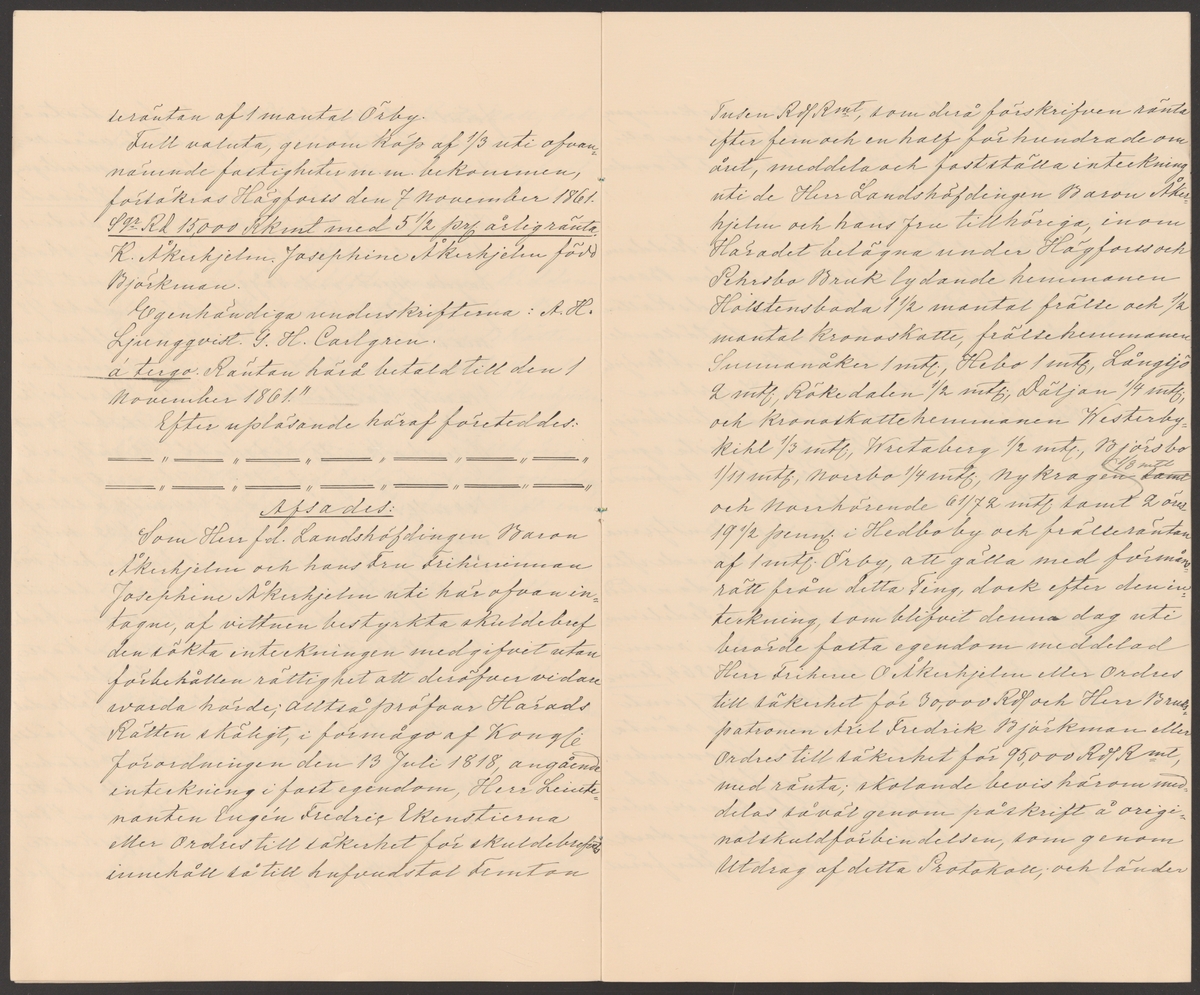 seräntan af 1 mantal Örby.
Full valuta, genom köp af 1/3 uti ofvan-
nämnde fastigheter m m bekommen,
försäkras Högforss den 7 November 1861.
Sgr Rd 15,000 Rkmt med 5 1/2 prc årlig ränta.
K. Åkerhjelm. Josephine Åkerhjelm född
Björkman.
Egenhändiga underskrifterna: A. H.
Ljungqvist. G. H. Carlgren.
á tergo. Räntan härå betald till den 1
November 1861."
Efter upläsande häraf företeddes:
Afsades:
Som Herr f.d. Landshöfdingen Baron
Åkerhjelm och hans Fru Friherrinnan
Josephine Åkerhjelm uti här ofvan in-
tagne, af vittnen bestyrkta skuldebref
den sökta inteckningen medgifvit utan
förbehållen rättighet att deröfver vidare
warda hörde; alltså pröfvar Härads
Rätten skäligt, i förmågo af Kongl.
förordningen den 13 Juli 1818, angående
inteckning i fast egendom, Herr Leiute-
nanten Eugén Fredric Ekenstierna
eller Ordres till säkerhet för skuldebrefvets
innehåll så till hufvudstol Femton
Tusen Rdf Rmt, som derå förskrifven ränta
efter fem och en half för hundrade om
året, meddela och fastställa inteckning
uti de Herr Landshöfdingen Baron Åker-
hjelm och hans fru tillhöriga, inom
Häradet belägna under Högforss och
Pehrsbo Bruk lydande hemmanen
Holstensboda 1 1/2 mantal frälse och 1/2
mantal kronoskatte, frälsehemmanen
Sunnanåker 1 mtl, Hebo 1 mtl, Långsjö
2 mtl, Rökedalen 1/2 mtl, Däljan 1/4 mtl,
och kronoskattehemmanen Westerby-
kihl 1/3 mtl, Wretaberg 1/2 mtl, Björsbo
1/3 mtl
1/11 mtl, Norrbo 1/4 mtl, Nykragen samt
och Norrhörende 61/72 mtl samt 2 öre
19 1/2 penn. i Hedbo by och frälseräntan
af 1 mtl Örby, att gälla med förmåns-
rätt från detta Ting, dock efter den in-
teckning, som blifvit denna dag uti
berörde fasta egendom meddelad
Herr Friherre O Åkerhjelm eller Ordres
till säkerhet för 30,000 Rdf och Herr Bruks-
patronen Axel Fredrik Björkman eller
Ordres till säkerhet för 95,000 Rdf Rmt,
med ränta; skolande bevis härom med-
delas såväl genom påskrift å origi-
nalskuldförbindelsen, som genom
Utdrag af detta Protokoll; och länder